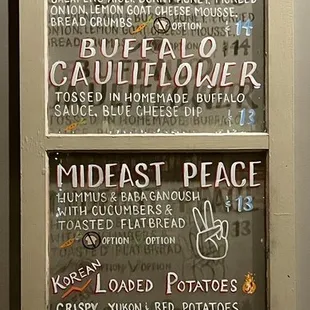 ONION, LEMON GOAT CHEESE MOUSSE,
BREAD CRUMBS OPTION $14
BUFFALO
CAULIFLOWER
TOSSED IN HOMEMADE BUFFALO
SAUCE, BLUE CHEESE DIP $13
MIDEAST PEACE
HUMMUS & BABA GANOUSH $13
WITH CUCUMBERS &
TOASTED FLATBREAD
OPTION OPTION
KOREAN LOADED POTATOES
CRISPY YUKON & RED POTATOES